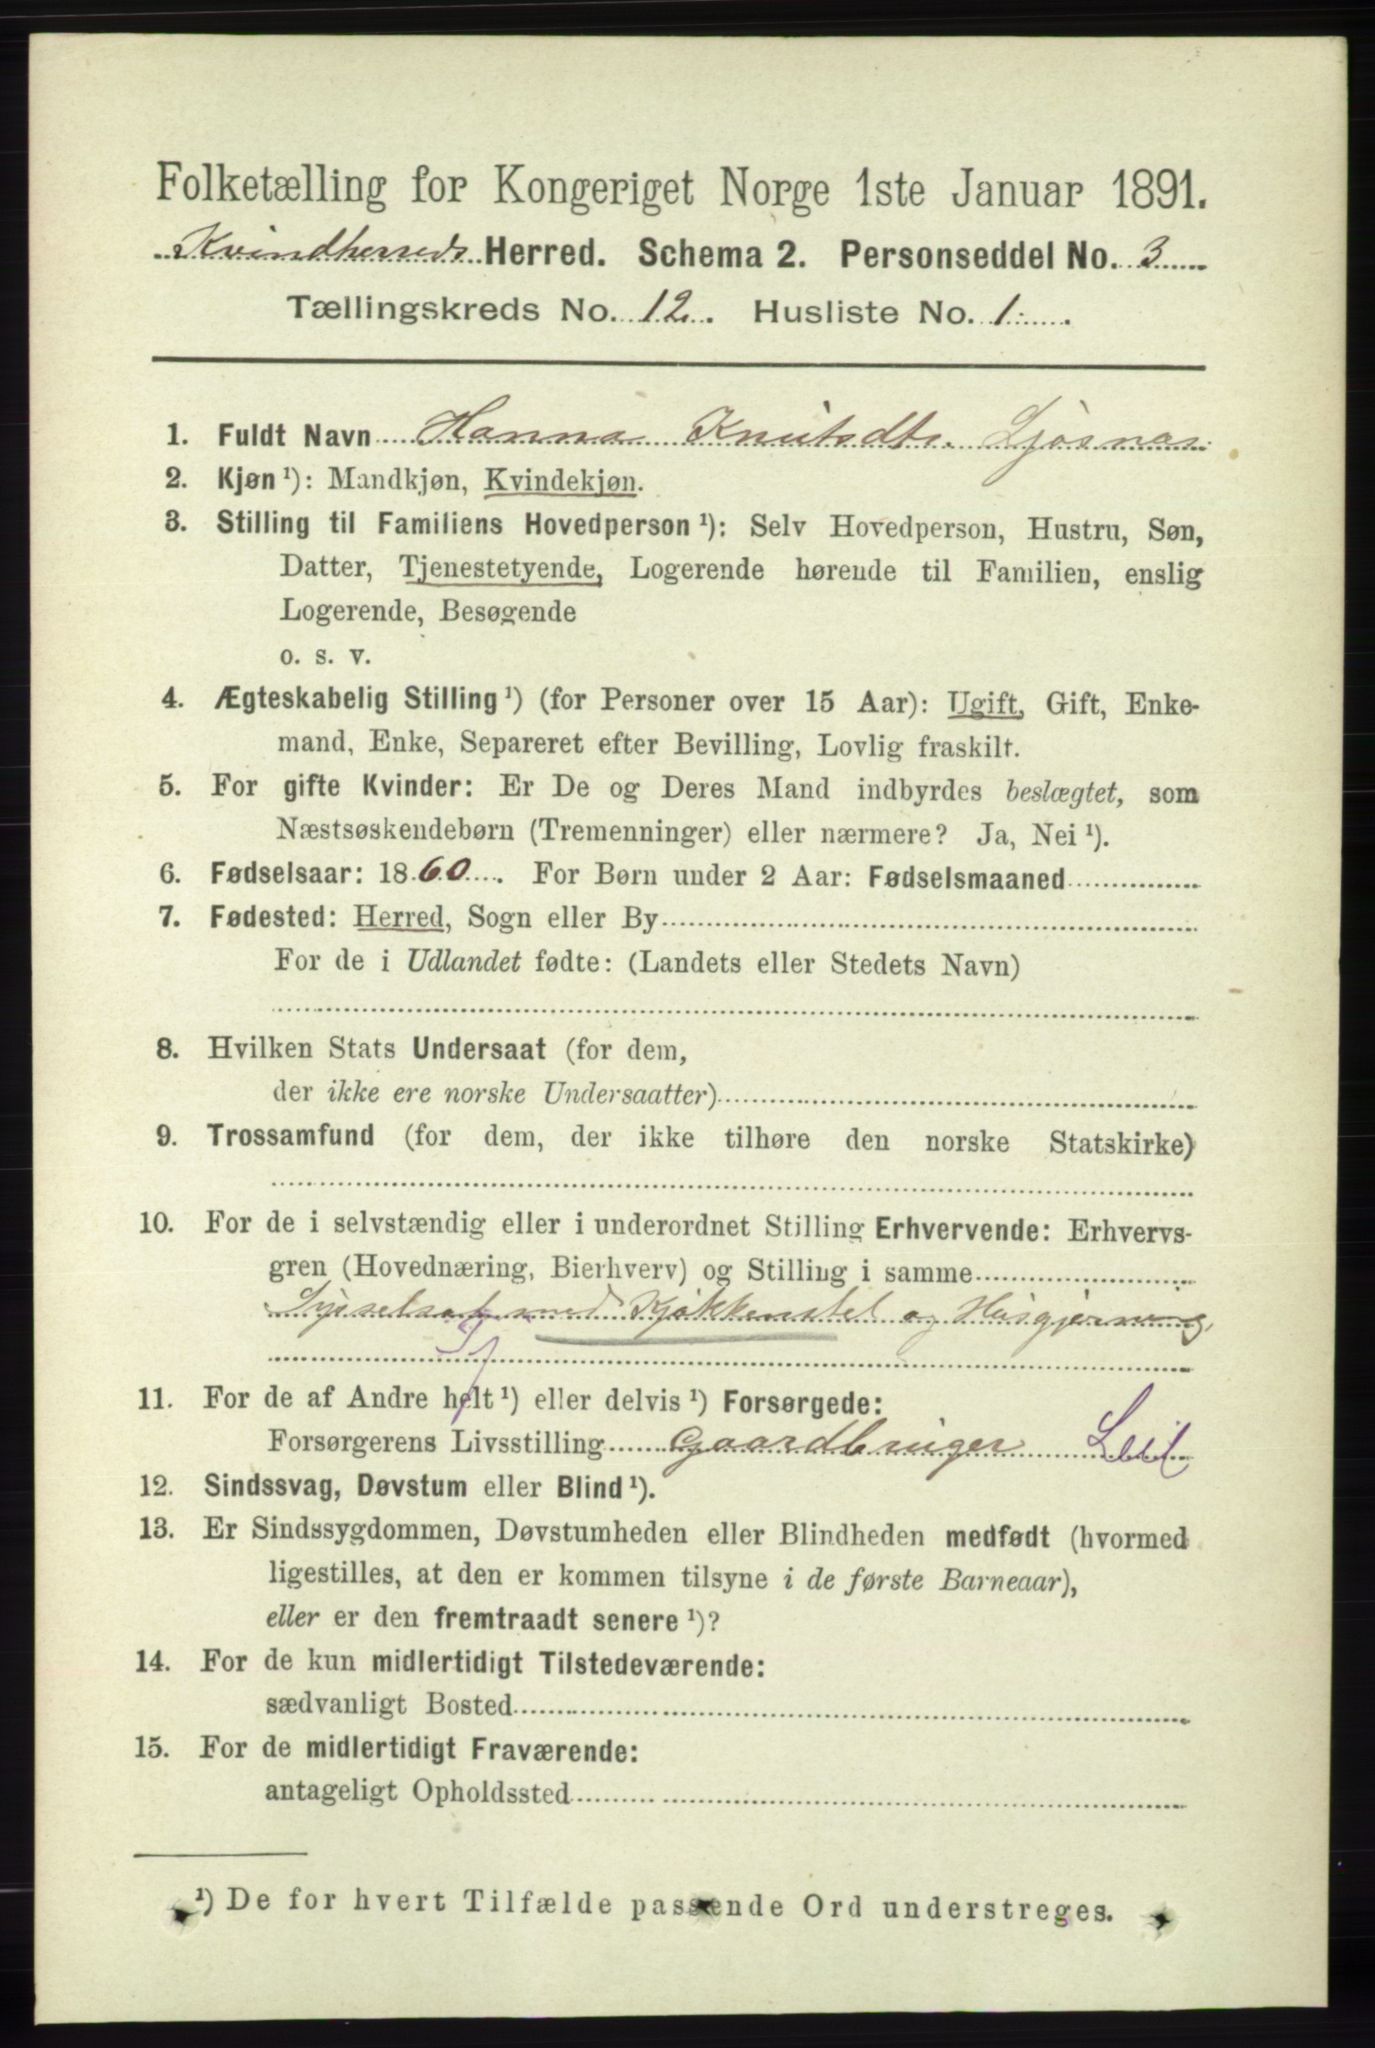 Folketælling for Kongeriget Norge 1ste Januar 1891.
Kvindherreds Herred. Schema 2. Personseddel No. 3
Tællingskreds No. 12. Husliste No. 1.
1. Fuldt Navn Hanna Knutsdtr. Ljosnæs
2. Kjøn ¹): Mandkjøn, Kvindekjøn.
3. Stilling til Familiens Hovedperson ¹): Selv Hovedperson, Hustru, Søn,
Datter, Tjenestetyende, Logerende hørende til Familien, enslig
Logerende, Besøgende
o. s. v.
4. Ægteskabelig Stilling ¹) (for Personer over 15 Aar): Ugift, Gift, Enke-
mand, Enke, Separeret efter Bevilling, Lovlig fraskilt.
5. For gifte Kvinder: Er De og Deres Mand indbyrdes beslægtet, som
Næstsøskendebørn (Tremenninger) eller nærmere? Ja, Nei ¹).
6. Fødselsaar: 1860. For Børn under 2 Aar: Fødselsmaaned
7. Fødested: Herred, Sogn eller By
For de i Udlandet fødte: (Landets eller Stedets Navn)
8. Hvilken Stats Undersaat (for dem,
der ikke ere norske Undersaatter)
9. Trossamfund (for dem, der ikke tilhøre den norske Statskirke)
10. For de i selvstændig eller i underordnet Stilling Erhvervende: Erhvervs-
gren (Hovednæring, Bierhverv) og Stilling i samme
Sysselsat med Kjøkkenstel og Husgjerning,
11. For de af Andre helt ¹) eller delvis ¹) Forsørgede:
Forsørgerens Livsstilling Gaardbruger
12. Sindssvag, Døvstum eller Blind ¹).
13. Er Sindssygdommen, Døvstumheden eller Blindheden medfødt (hvormed
ligestilles, at den er kommen tilsyne i de første Barneaar),
eller er den fremtraadt senere ¹)?
14. For de kun midlertidigt Tilstedeværende:
sædvanligt Bosted
15. For de midlertidigt Fraværende:
antageligt Opholdssted
¹) De for hvert Tilfælde passende Ord understreges.